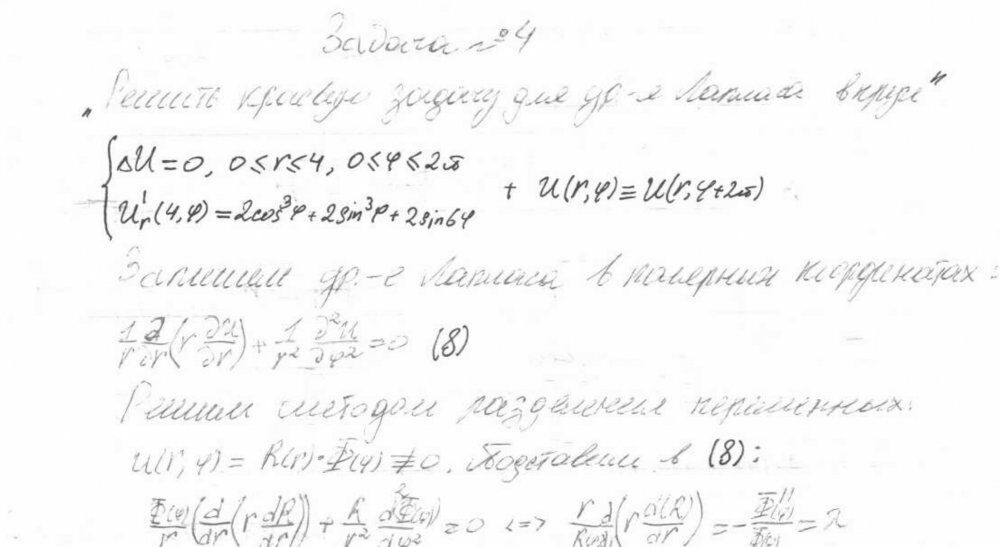 Задача №4
„Решить краевую задачу для ур-я Лапласа в круге"
{ΔU = 0, 0 ≤ r ≤ 4, 0 ≤ φ ≤ 2π
U'ᵣ(4, φ) = 2cos³φ + 2sin³φ + 2sin6φ + U(r, φ) ≡ U(r, φ+2π)
Запишем ур.-е Лапласа в полярных координатах:
1/r ∂/∂r (r ∂U/∂r) + 1/r² ∂²U/∂φ² = 0 (8)
Решим методом разделения переменных:
U(r, φ) = R(r)·Φ(φ) ≢ 0. Подставим в (8):
Φ(φ)/r (d/dr (r dR/dr)) + R/r² d²Φ(φ)/dφ² = 0 <=> r d/R(r)dr (r d(R)/dr) = -Φ''(φ)/Φ(φ) = λ